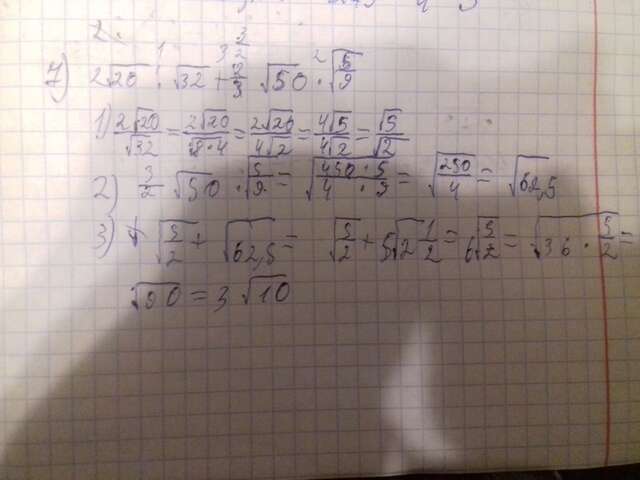 2.
1 3 3/2 2
7) 2√20 : √32 + 3/2 √50 · √5/9
1) 2√20/√32 = 2√20/√8·4 = 2√20/4√2 = 4√5/4√2 = √5/√2
2) 3/2 √50 · √5/9 = √450·5/4·9 = √250/4 = √62,5
3) √5/2 + √62,5 = √5/2 + 5√2 1/2 = 6√5/2 = √36·5/2 =
√90 = 3√10